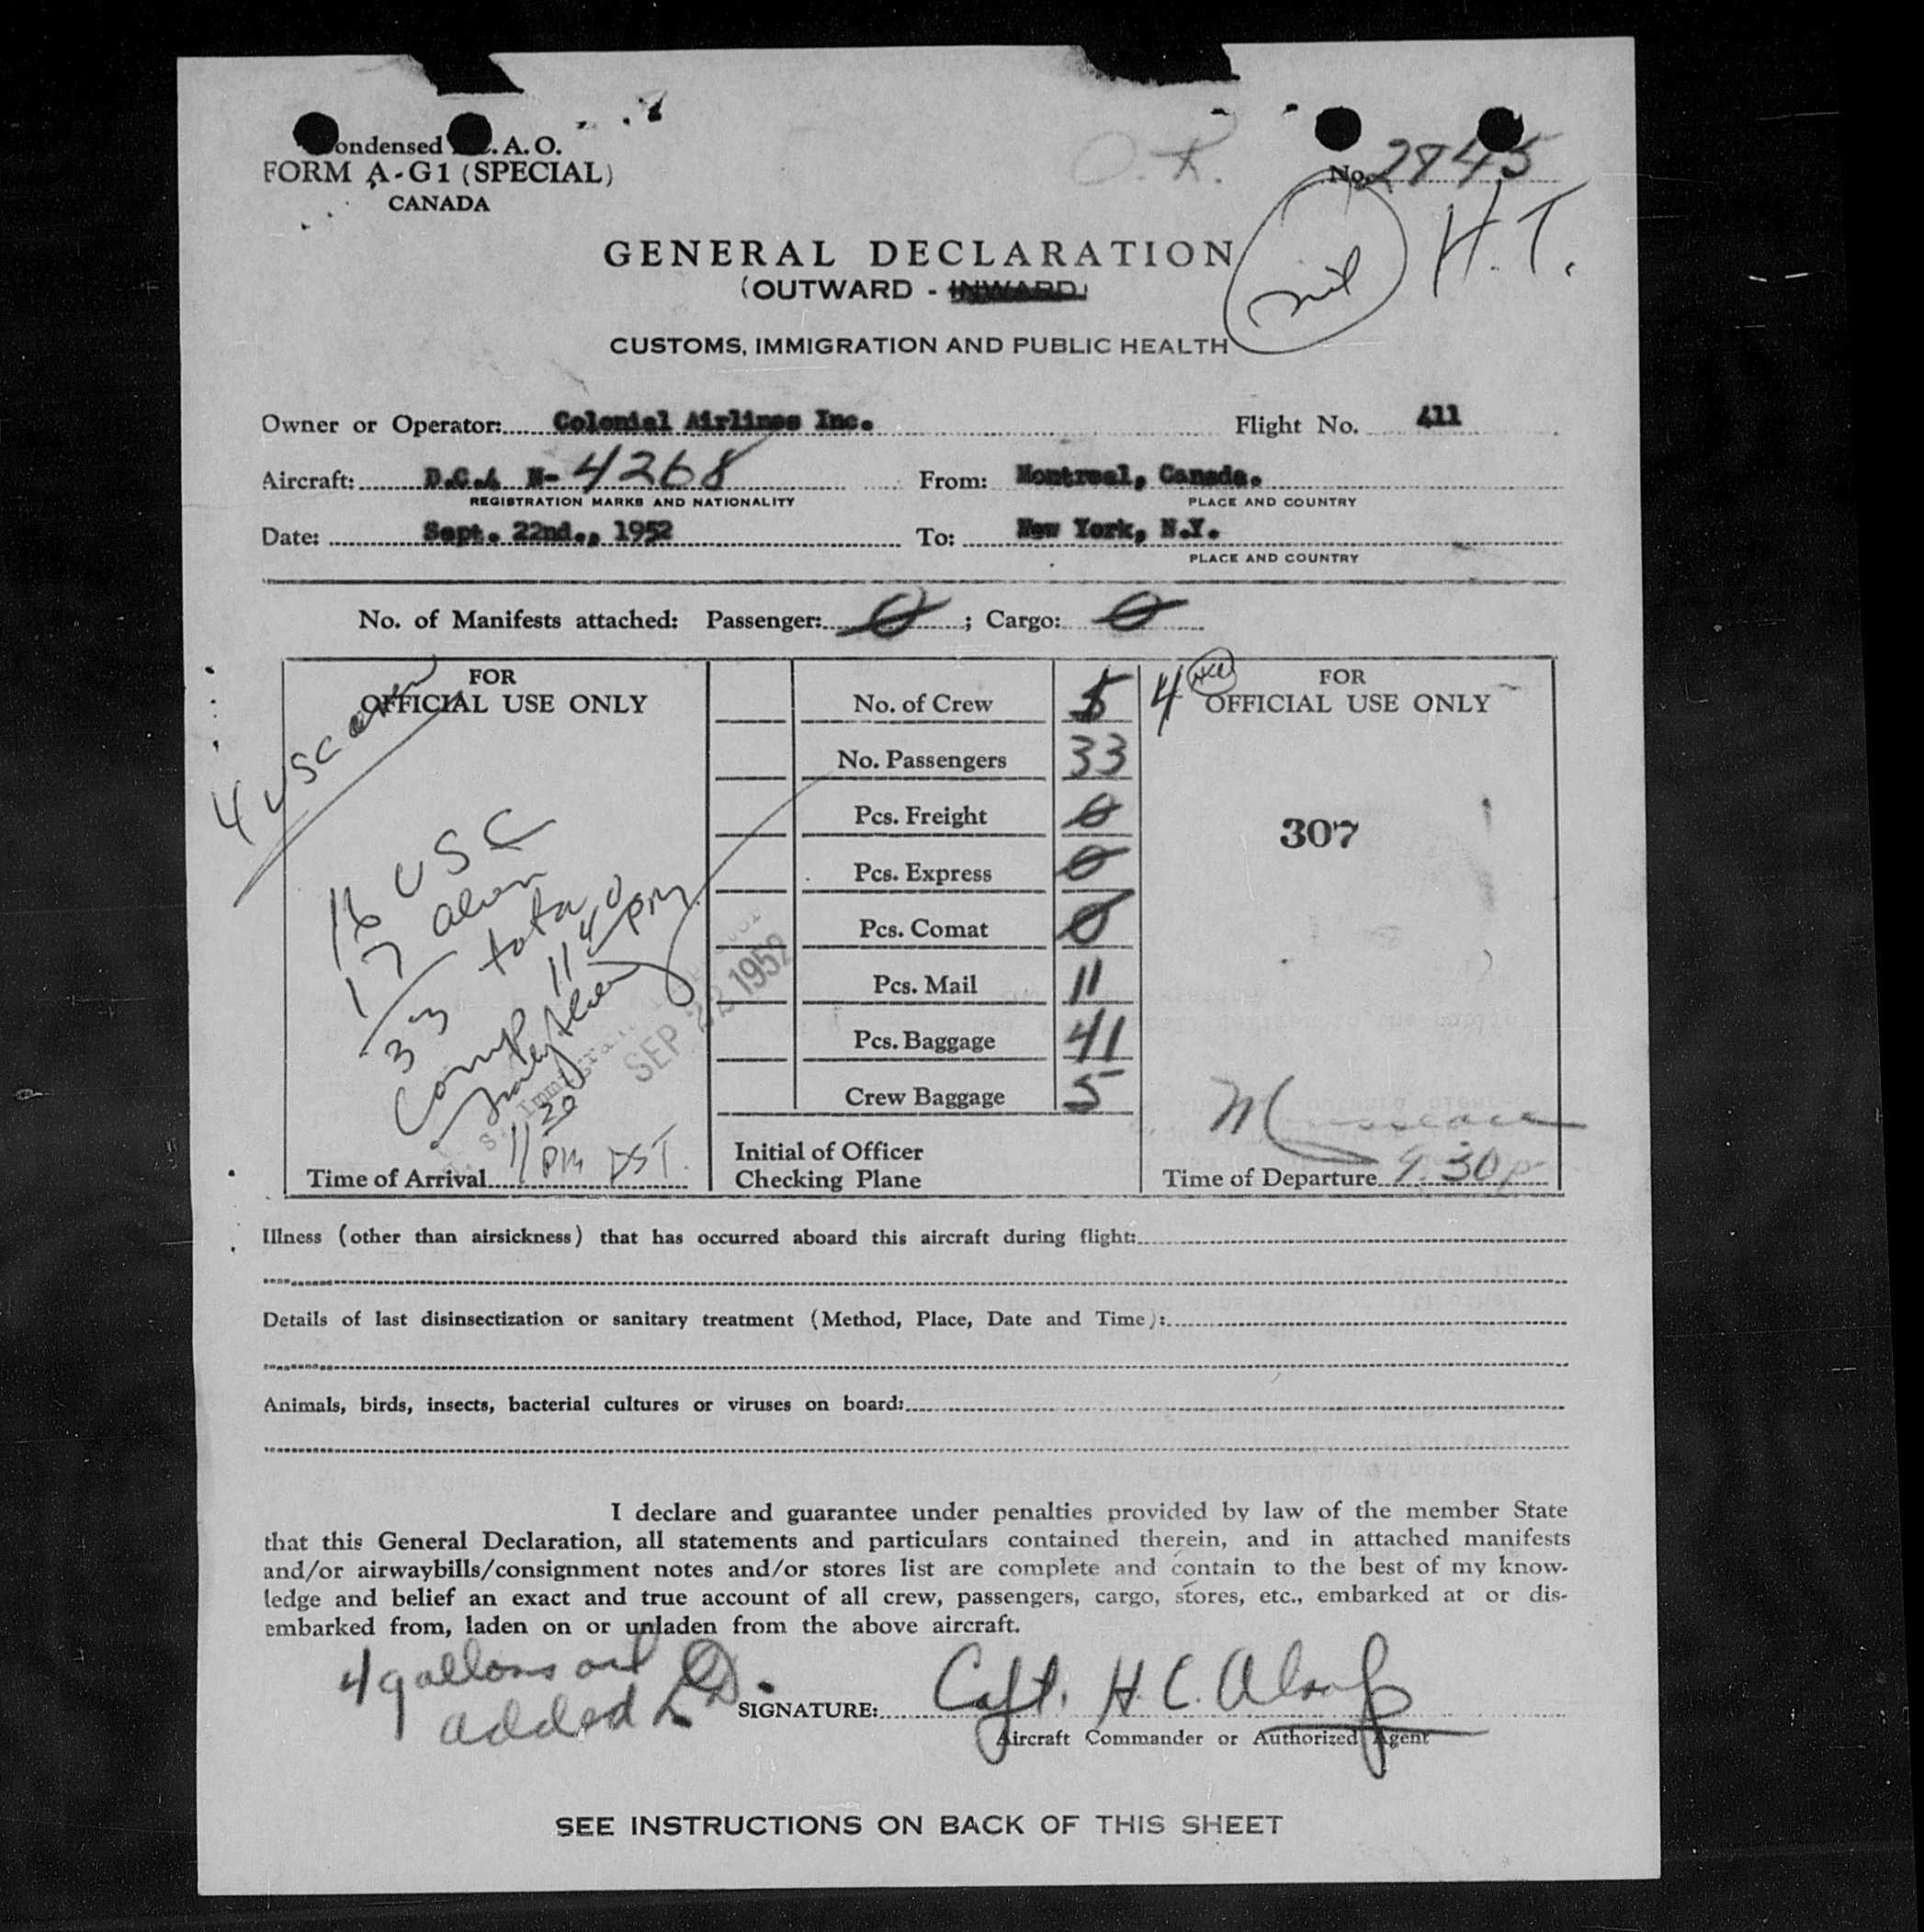 ondensed .A.O.
FORM A-G1 (SPECIAL)
CANADA
O.K.
No. 2945
nil H.T.
GENERAL DECLARATION
(OUTWARD - INWARD)
CUSTOMS, IMMIGRATION AND PUBLIC HEALTH
Owner or Operator: Colonial Airlines Inc. Flight No. 411
Aircraft: D.C.4 N-4268 From: Montreal, Canada.
REGISTRATION MARKS AND NATIONALITY PLACE AND COUNTRY
Date: Sept. 22nd., 1952 To: New York, N.Y.
PLACE AND COUNTRY
No. of Manifests attached: Passenger: 0 ; Cargo: 0
FOR
OFFICIAL USE ONLY
4 USC crew
16 USC
17 alien
33 total
Comp 11 40 PM
SEP 22 1952
Time of Arrival 11 20 PM DST.
No. of Crew 5 4
No. Passengers 33
Pcs. Freight 0
Pcs. Express 0
Pcs. Comat 0
Pcs. Mail 11
Pcs. Baggage 41
Crew Baggage 5
Initial of Officer
Checking Plane
FOR
OFFICIAL USE ONLY
307
Time of Departure 9.30 p
Illness (other than airsickness) that has occurred aboard this aircraft during flight:
Details of last disinsectization or sanitary treatment (Method, Place, Date and Time):
Animals, birds, insects, bacterial cultures or viruses on board:
I declare and guarantee under penalties provided by law of the member State
that this General Declaration, all statements and particulars contained therein, and in attached manifests
and/or airwaybills/consignment notes and/or stores list are complete and contain to the best of my know-
ledge and belief an exact and true account of all crew, passengers, cargo, stores, etc., embarked at or dis-
embarked from, laden on or unladen from the above aircraft.
4 gallons oil
added
SIGNATURE: Capt. H. C.
Aircraft Commander or Authorized Agent
SEE INSTRUCTIONS ON BACK OF THIS SHEET